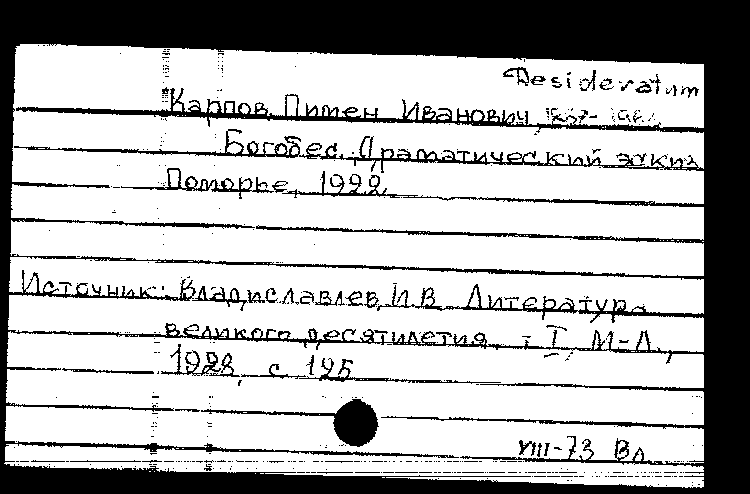 Desideratum
Карпов, Пимен Иванович,
Богобес. Драматический эскиз
Поморье, 1922
Источник: Владиславлев, И.В. Литература
великого десятилетия. т. I, М-Л.,
1928, с. 125
VIII-73 Вл.